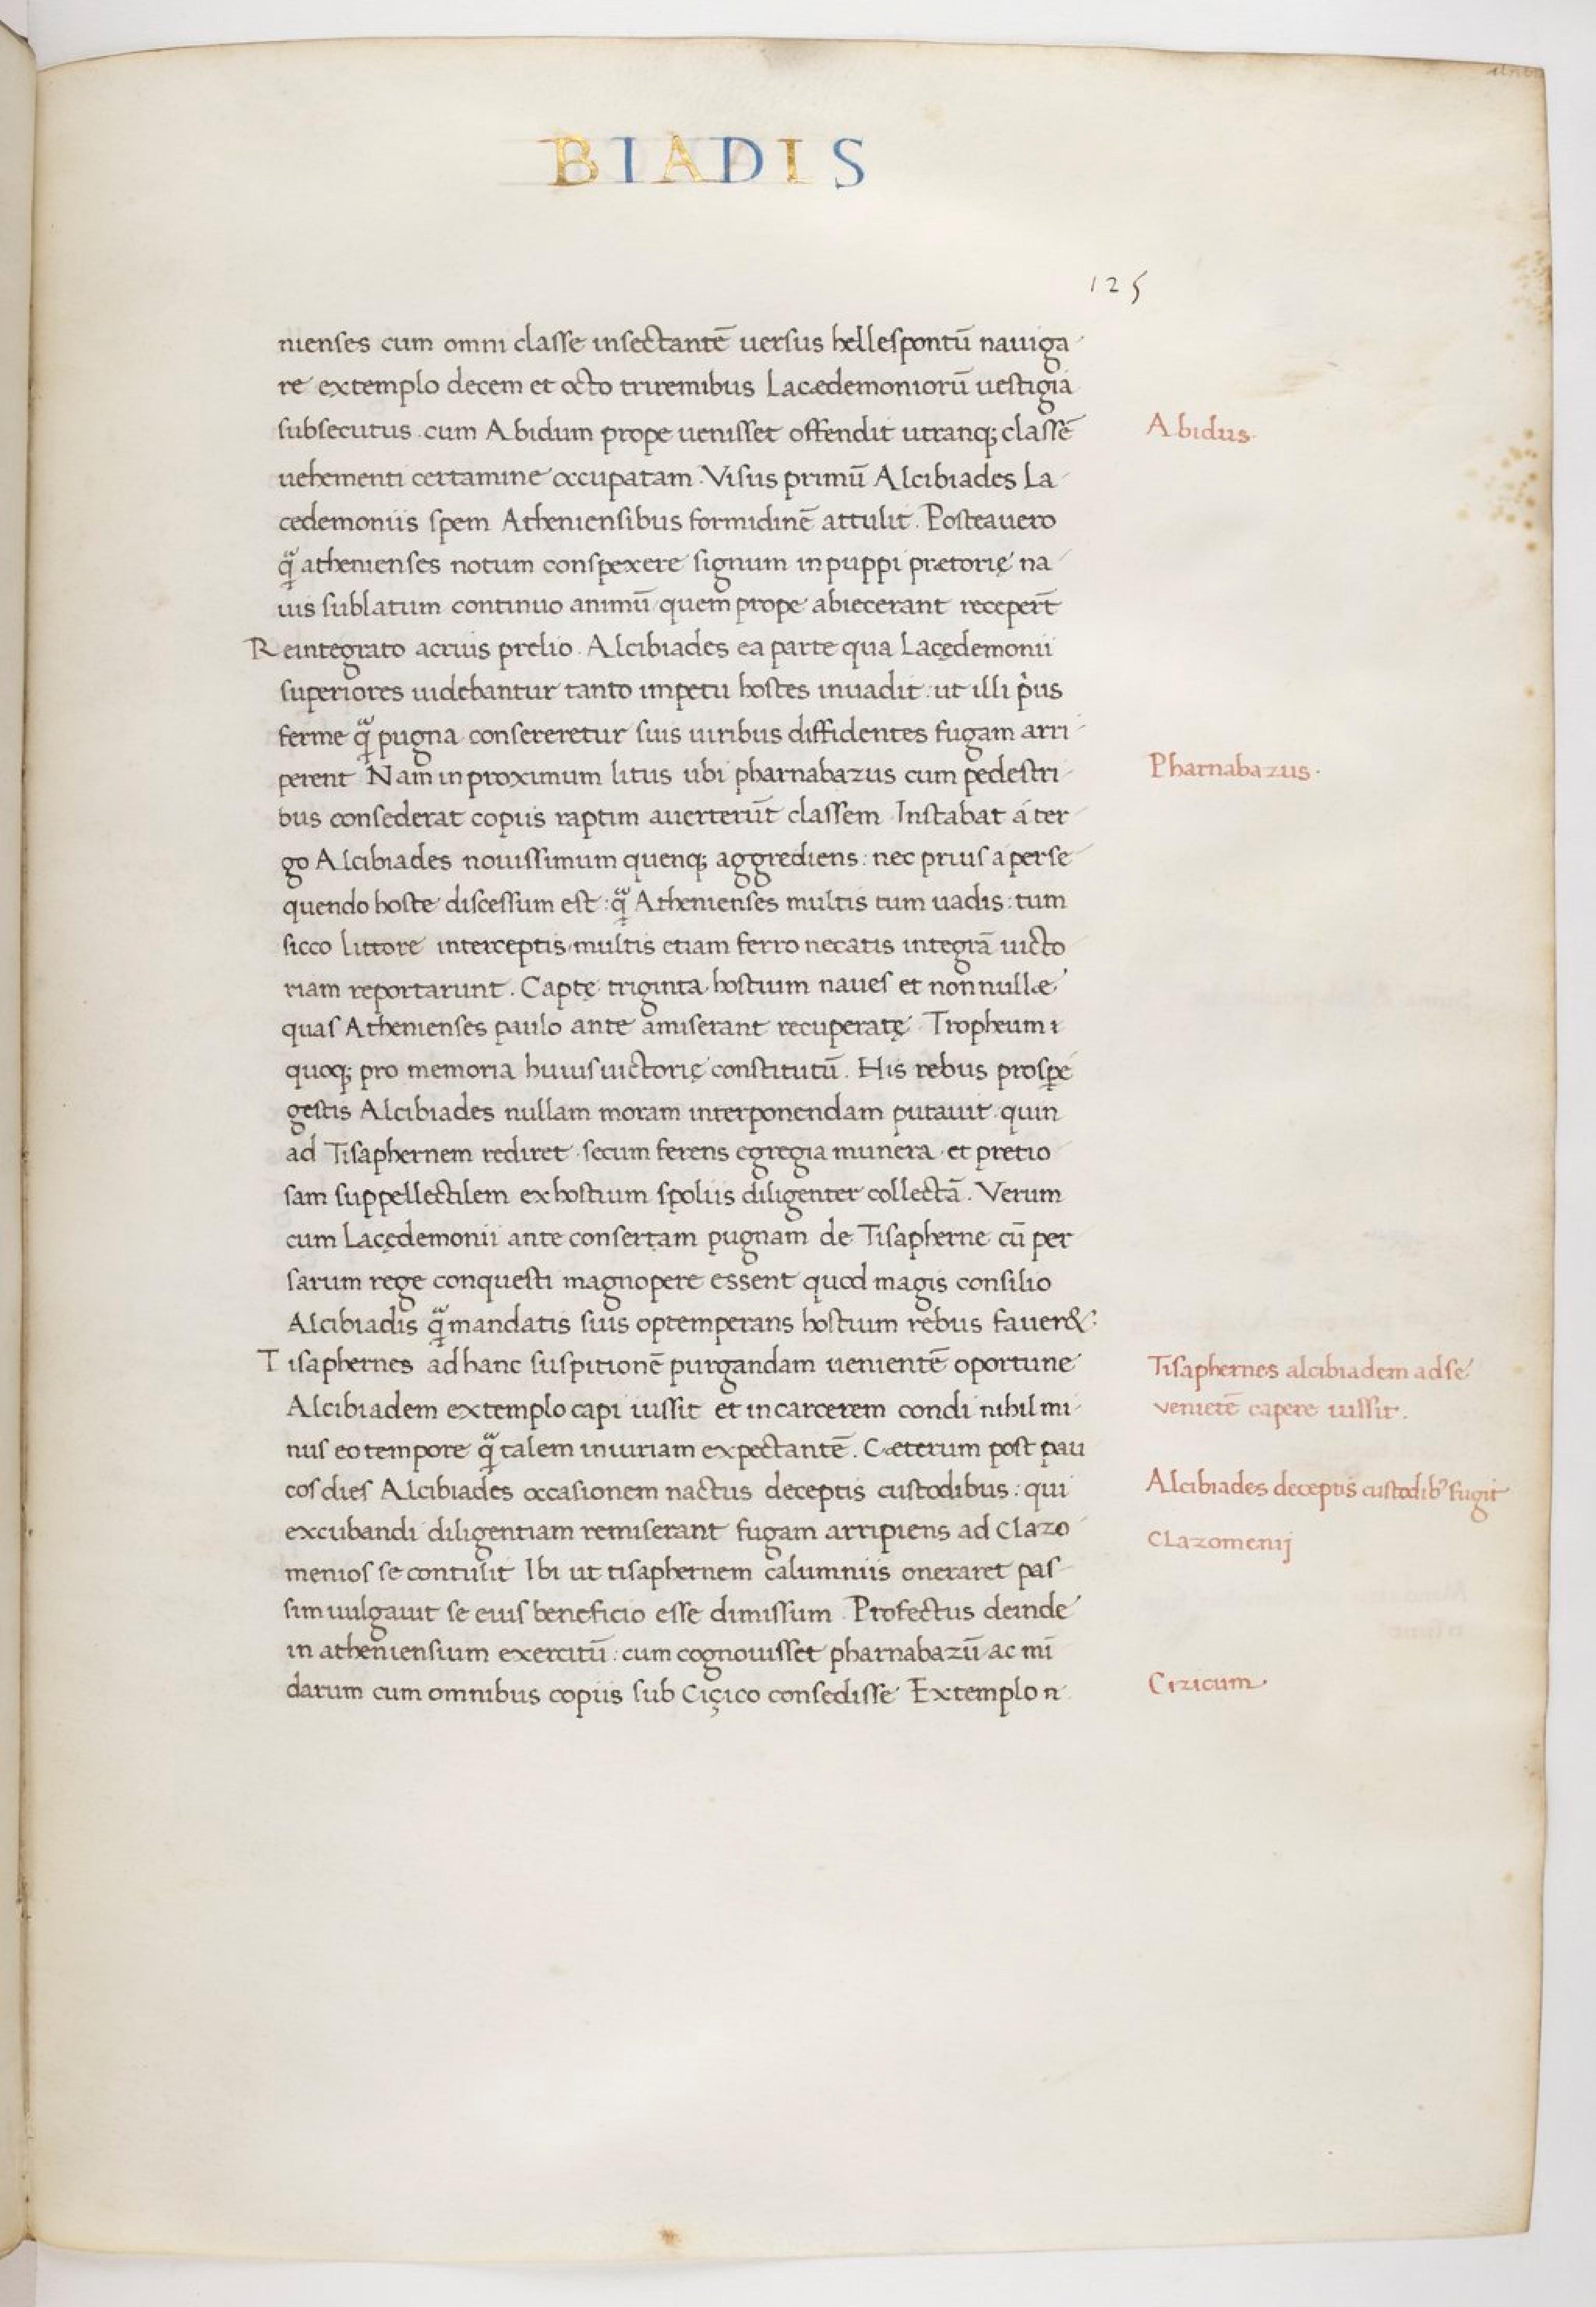 BIADIS
125
nienses cum omni classe insectantē uersus hellespontū nauiga
re extemplo decem et octo triremibus Lacædemoniorū uestigia
subsecutus. cum Abidum prope uenisset offendit utranq; classē
Abidus.
uehementi certamine occupatam. Visus primū Alcibiades La
cedemoniis spem Atheniensibus formidinē attulit. Posteauero
q̄ athenienses notum conspexere signum in puppi prætorię na
uis sublatum continuo animū quem prope abiecerant recepert̄
Reintegrato acrius prelio. Alcibiades ea parte qua Lacędemonii
superiores uidebantur tanto impetu hostes inuadit: ut illi p̓us
ferme q̄ pugna consereretur suis uiribus diffidentes fugam arri
perent Nam in proximum litus ubi pharnabazus cum pedestri
Pharnabazus.
bus consederat copiis raptim auerterūt classem. Instabat á ter
go Alcibiades nouissimum quenq; aggrediens: nec prius a perse
quendo hoste discessum est: q̄ Athenienses multis tum uadis: tum
sicco littore interceptis, multis etiam ferro necatis integrā uicto
riam reportarunt. Captę triginta hostium naues et non nullæ
quas Athenienses paulo ante amiserant recuperatę. Tropheum
quoq; pro memoria huius uictorię constitutū. His rebus prospe
gestis Alcibiades nullam moram interponendam putauit quin
ad Tisaphernem rediret secum ferens egregia munera et pretio
sam suppellectilem ex hostium spoliis diligenter collectā. Verum
cum Lacędemonii ante consertam pugnam de Tisapherne cū per
sarum rege conquesti magnopere essent quod magis consilio
Alcibiadis q̄ mandatis suis optemperans hostium rebus fauer&:
Tisaphernes ad hanc suspitionē purgandam uenientē oportune
Tisaphernes alcibiadem ad se
Alcibiadem extemplo capi iussit et in carcerem condi nihil mi
venietē capere iussit.
nus eo tempore q̄ talem iniuriam expectantē. Cæterum post pau
cos dies Alcibiades occasionem nactus deceptis custodibus: qui
Alcibiades deceptis custodib⁹ fugit
excubandi diligentiam remiserant fugam arripiens ad Clazo
Clazomenij
menios se contulit Ibi ut tisaphernem calumniis oneraret pas
sim uulgauit se eius beneficio esse dimissum. Profectus deinde
in atheniensium exercitū: cum cognouisset pharnabazū ac mi
darum cum omnibus copiis sub Ciçico consedisse Extemplo n
Cizicum.